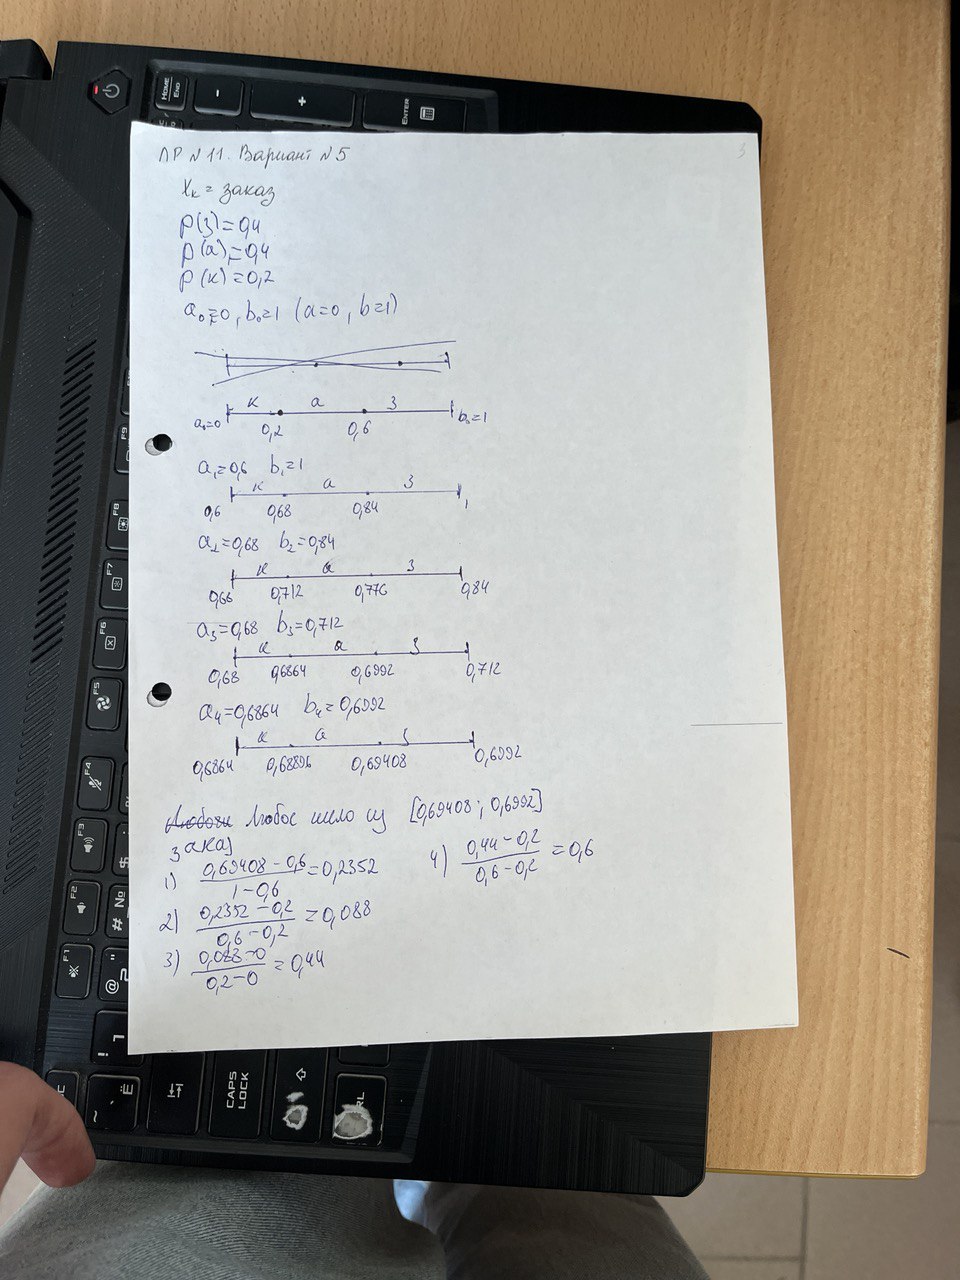 HOME
END
-
+
ENTER
ЛР №11. Вариант №5
3
Xк = заказ
P(з)=0,4
P(а)=0,4
P(к)=0,2
a₀=0, b₀=1 (a=0, b=1)
к а з
a₀=0 0,2 0,6 b₀=1
a₁=0,6 b₁=1
к а з
0,6 0,68 0,84 1
a₂=0,68 b₂=0,84
к а з
0,68 0,712 0,776 0,84
a₃=0,68 b₃=0,712
к а з
0,68 0,6864 0,6992 0,712
a₄=0,6864 b₄=0,6992
к а з
0,6864 0,68896 0,69408 0,6992
Любое число из [0,69408; 0,6992]
заказ
1) (0,69408-0,6)/(1-0,6)=0,2352
2) (0,2352-0,2)/(0,6-0,2)=0,088
3) (0,088-0)/(0,2-0)=0,44
4) (0,44-0,2)/(0,6-0,2)=0,6
F9
F8
F7
F6
F5
F4
F3
F2
F1
CAPS LOCK